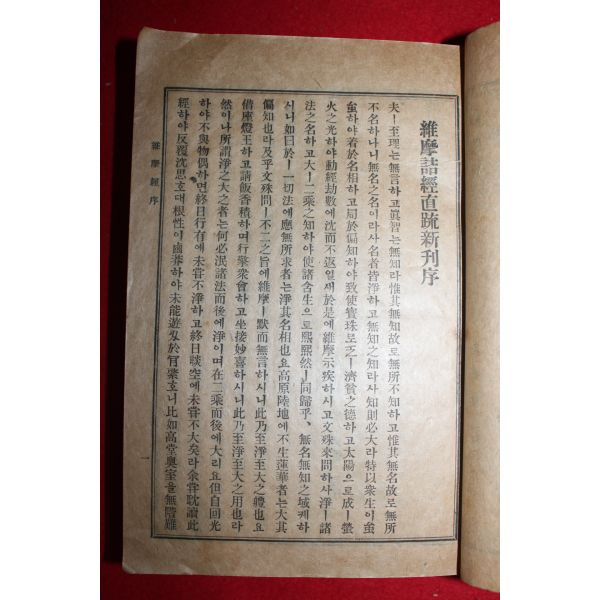 維摩詰經直䟽新刊序
夫ㅣ至理는無言하고眞智는無知라惟其無知故로無所不知하고惟其無名故로無所
不名하나니無名之名이라사名者皆淨하고無知之知라사知則必大라特以衆生이蚩
蚩하야着於名相하고局於偏知하야致使寶珠로乏ㅣ濟貧之德하고太陽으로成ㅣ螢
火之光하야動經劫數에沈而不返일새於是에維摩示疾하시고文殊來問하사淨ㅣ諸
法之名하고大ㅣ二乘之知하야使諸含生으로熙熙然ㅣ同歸乎、無名無知之域케하
시니如曰於ㅣ一切法에應無所求者는淨其名相也요高原陸地에不生蓮華者는大其
偏知也라及乎文殊問ㅣ不二之旨에維摩ㅣ默而無言하시니此乃至淨至大之體也요
借座燈王하고請飯香積하며行擎衆會하고坐接妙喜하시니此乃至淨至大之用也라
然이나所謂淨之大之者는何必泯諸法而後에淨이며在二乘而後에大리요但自回光
하야不與物偶하면終日行有에未甞不淨하고終日談空에未甞不大矣라余甞耽讀此
經하야反覆沈思호대根性이鹵莽하야未能遊刄於肎綮호니比如高堂奧室을無階難
維摩經序
一